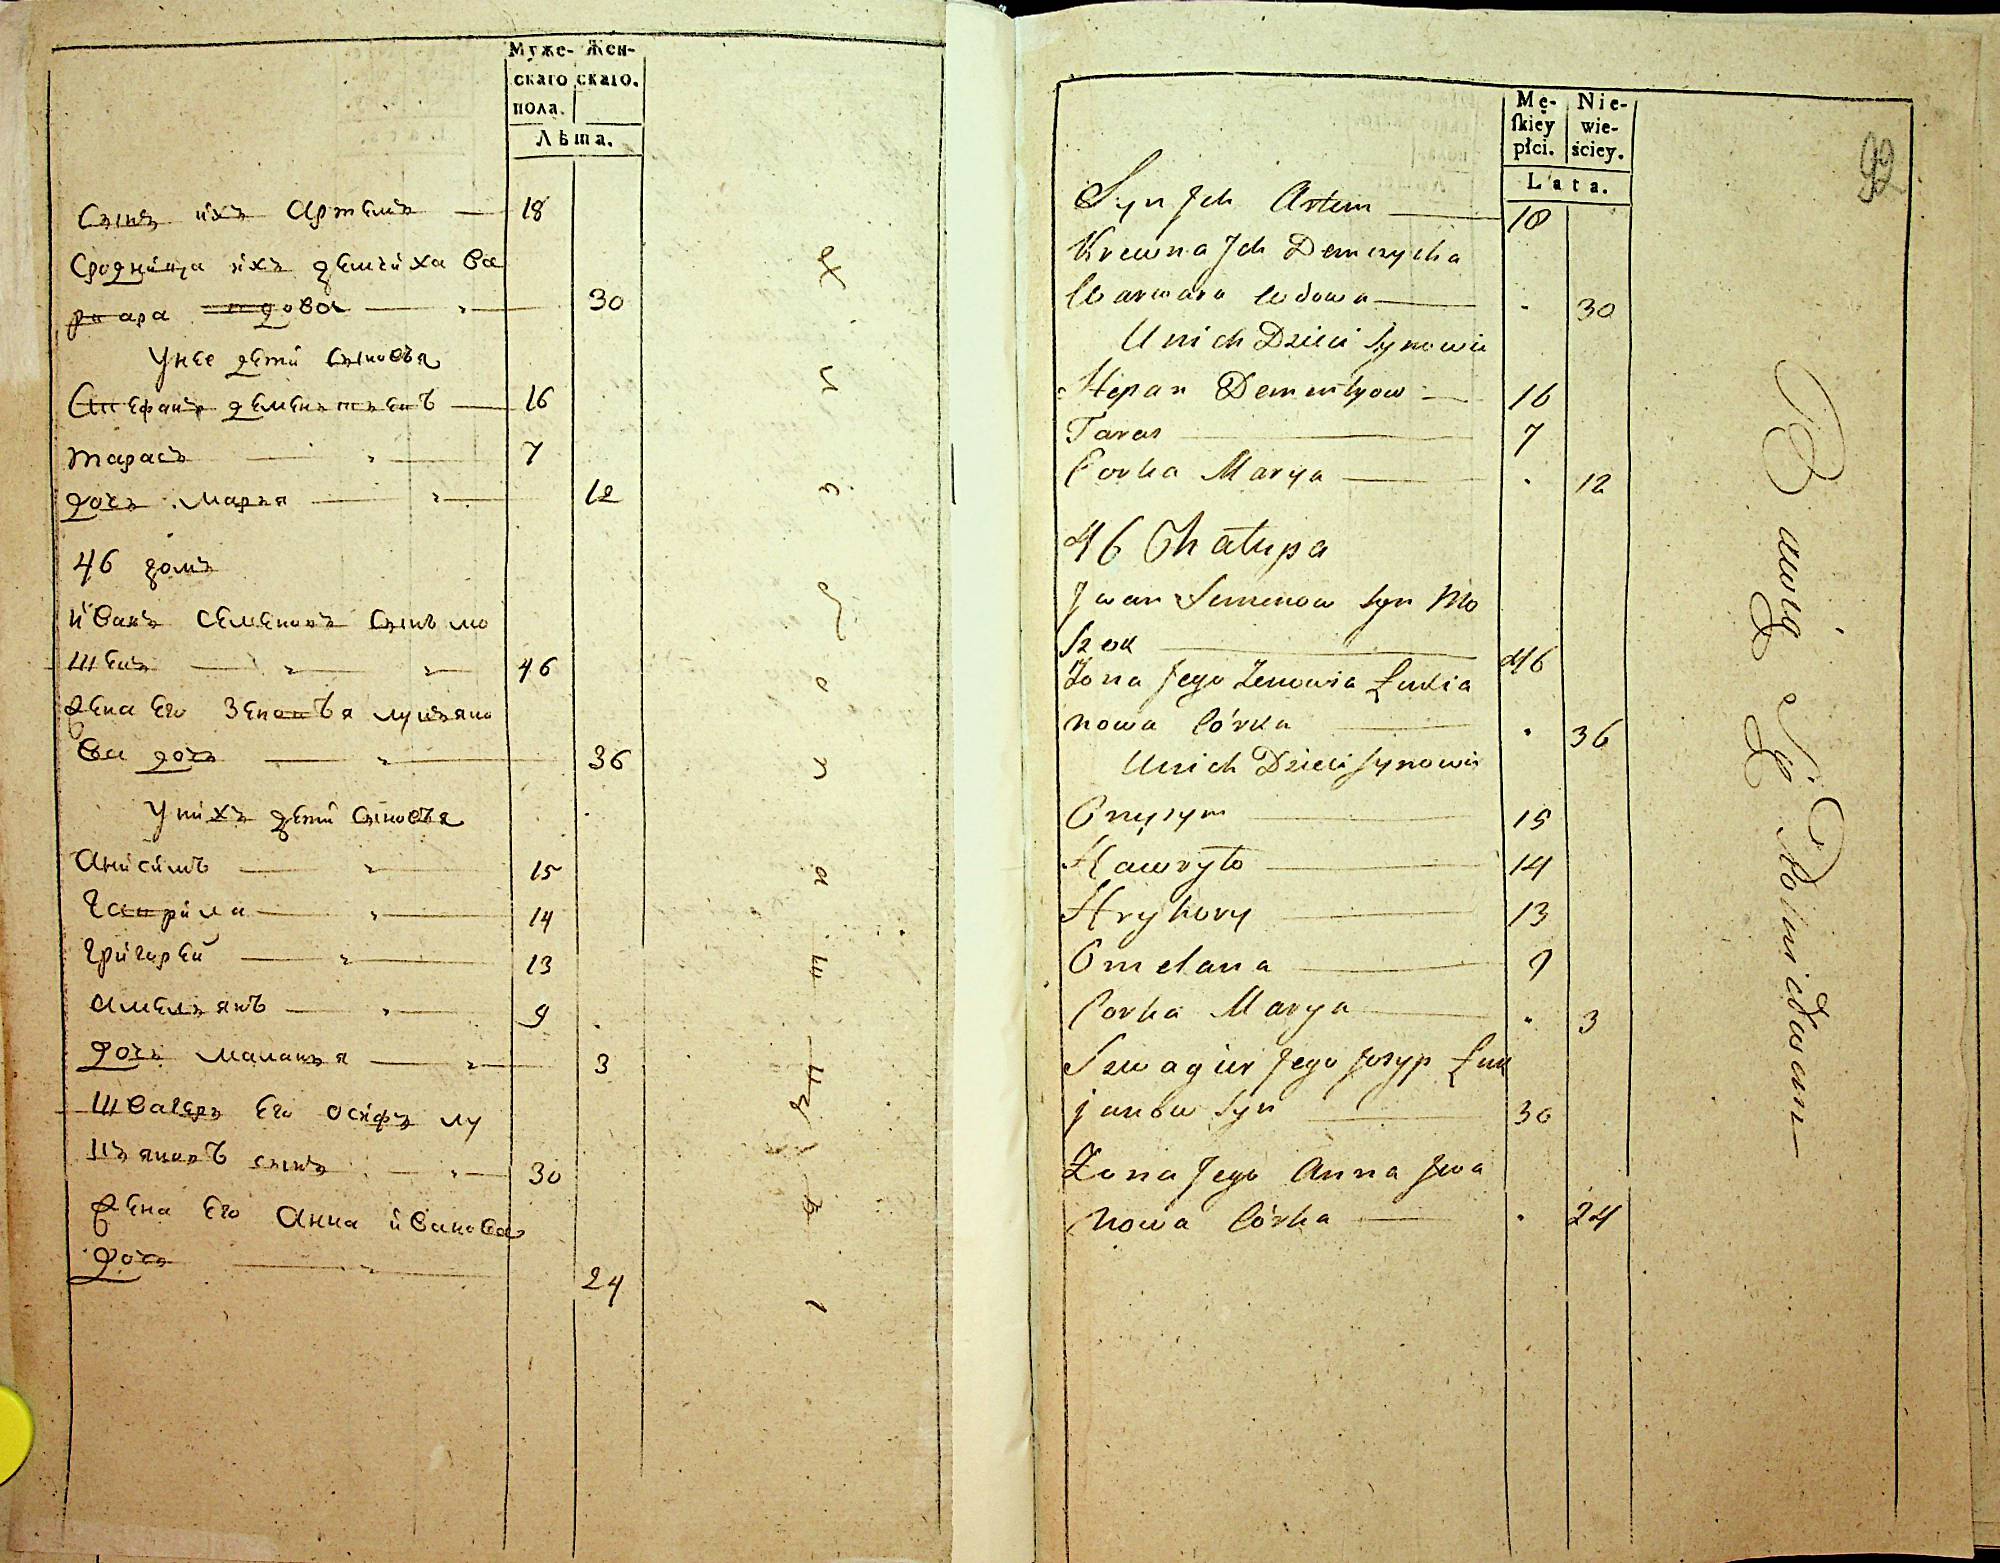 Муже-
скаго
пола.
Жен-
скаго.
Лѣта.
Сынъ ихъ Артемъ — 18
Сродница ихъ демчиха Ва
рвара вдова — „ — 30
У нее дети сыновья
Стефанъ дементьевъ — 16
Тарасъ — „ — 7
дочь Марья — „ — 12
46 домъ
Иванъ Семеновъ сынъ мо
шекъ — „ — „ — 46
Жена его Зеновья лукьяно
ва дочь — „ — 36
У нихъ дети сыновья
Анисимъ — „ — 15
Гаврила — „ — 14
Григорей — „ — 13
Амельянъ — „ — 9
дочь Маланья — „ — 3
Швагеръ его Осифъ лу
кьяновъ сынъ — „ — 30
Жена его Анна Иванова
дочь — „ — 24
Mę-
skiey
płci.
Nie-
wie-
ściey.
Lata.
92
Syn Jch Artem — 18
Krewna Jch Demczycha
Warwara wdowa — 30
U nich Dzieci Synowie
Stepan Dementyow — 16
Taras — 7
Corka Marya — 12
46 Chałupa
Jwan Semenow Syn Mo
szek — 46
Żona Jego Zenowia Łukia
nowa Córka — 36
U nich Dzieci Synowie
Onysym — 15
Hawryło — 14
Hryhory — 13
Omelana — 9
Corka Marya — 3
Szwagier Jego Josyp Łuk
janów Syn — 30
Żona Jego Anna Jwa
nowa Córka — 24
Bawią Się Rolnictwem